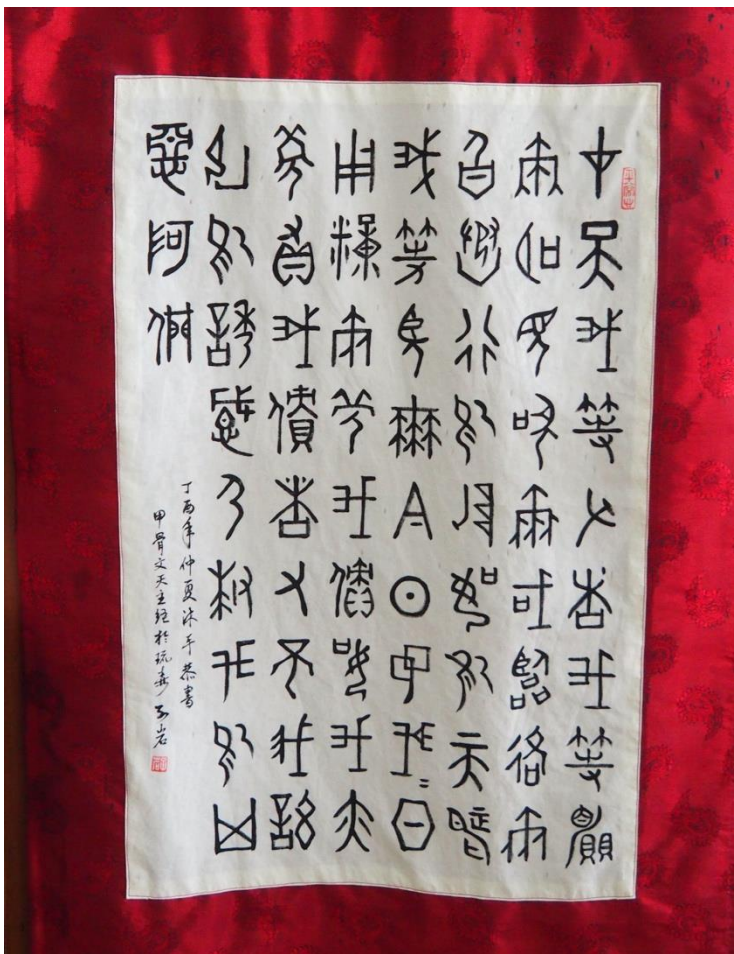 在天我等父者我等願
爾名見聖爾國臨格爾
旨承行於地如於天焉
我等望爾今日與我我日
用糧爾免我債如我亦
免負我債者又不我許
陷於誘感乃救我於凶
惡阿們
丁酉年仲夏沐手恭書
甲骨文天主經於